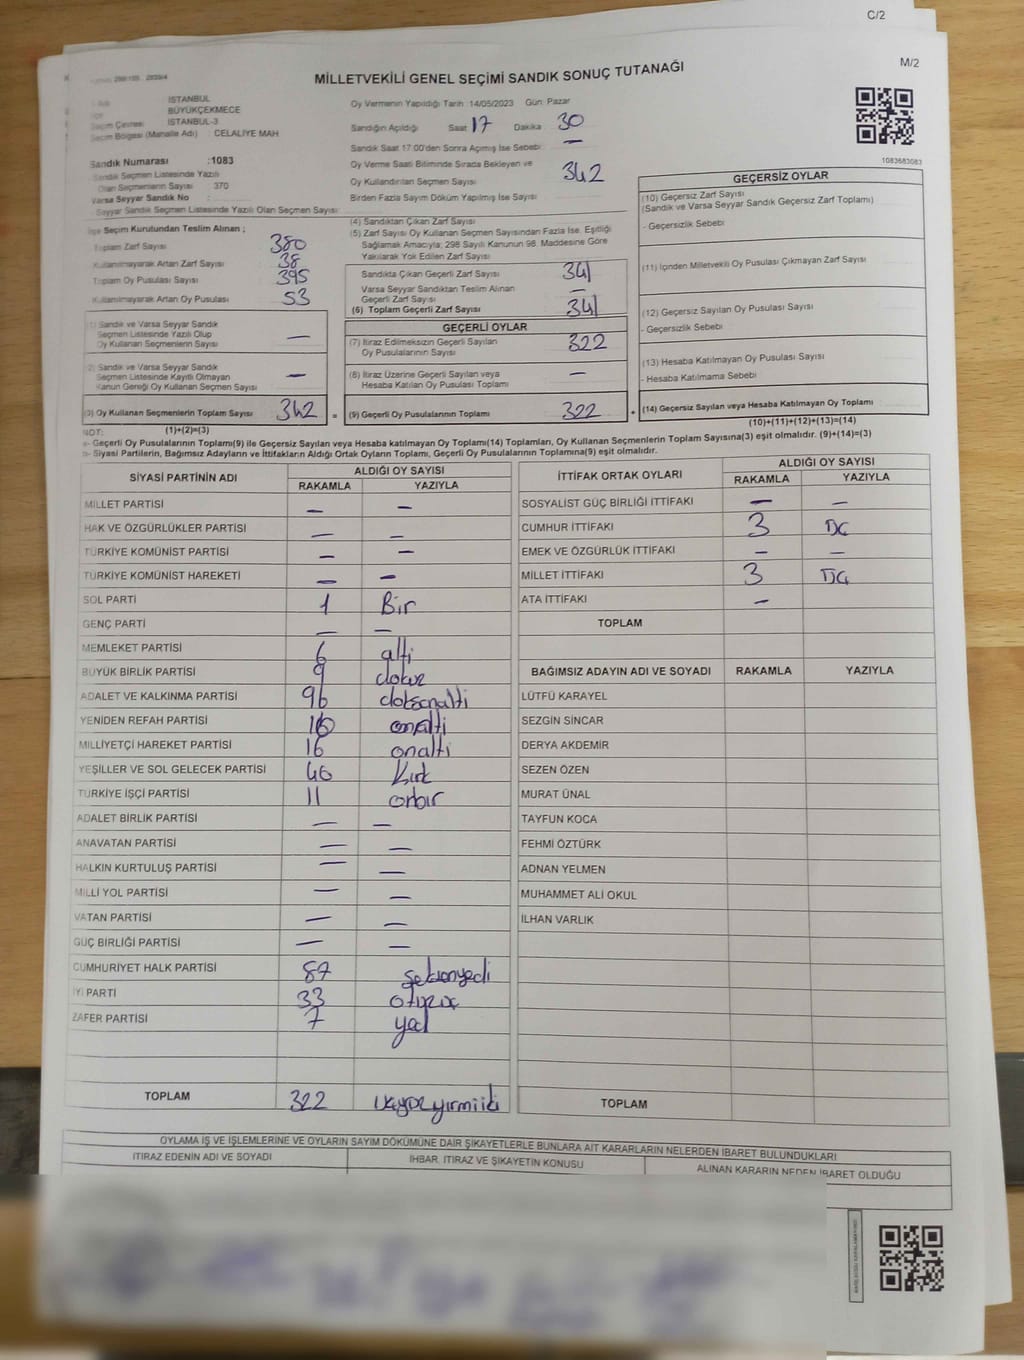 C/2
M/2
MİLLETVEKİLİ GENEL SEÇİMİ SANDIK SONUÇ TUTANAĞI
İSTANBUL
BÜYÜKÇEKMECE
Seçim Çevresi İSTANBUL-3
Seçim Bölgesi (Mahalle Adı) CELALİYE MAH
Sandık Numarası :1083
Sandık Seçmen Listesinde Yazılı
Olan Seçmenlerin Sayısı 370
Varsa Seyyar Sandık No
Seyyar Sandık Seçmen Listesinde Yazılı Olan Seçmen Sayısı
Oy Vermenin Yapıldığı Tarih :14/05/2023 Gün: Pazar
Sandığın Açıldığı Saat 17 Dakika 30
Sandık Saat 17.00'den Sonra Açımış İse Sebebi: —
Oy Verme Saati Bitiminde Sırada Bekleyen ve
Oy Kullandırılan Seçmen Sayısı 342
Birden Fazla Sayım Döküm Yapılmış İse Sayısı
1083683083
İlçe Seçim Kurulundan Teslim Alınan ;
Toplam Zarf Sayısı 380
Kullanılmayarak Artan Zarf Sayısı 38
Toplam Oy Pusulası Sayısı 395
Kullanılmayarak Artan Oy Pusulası 53
(1) Sandık ve Varsa Seyyar Sandık
Seçmen Listesinde Yazılı Olup
Oy Kullanan Seçmenlerin Sayısı —
(2) Sandık ve Varsa Seyyar Sandık
Seçmen Listesinde Kayıtlı Olmayan
Kanun Gereği Oy Kullanan Seçmen Sayısı —
(3) Oy Kullanan Seçmenlerin Toplam Sayısı 342 =
(1)+(2)=(3)
(4) Sandıktan Çıkan Zarf Sayısı
(5) Zarf Sayısı Oy Kullanan Seçmen Sayısından Fazla İse, Eşitliği
Sağlamak Amacıyla; 298 Sayılı Kanunun 98. Maddesine Göre
Yakılarak Yok Edilen Zarf Sayısı
Sandıkta Çıkan Geçerli Zarf Sayısı 341
Varsa Seyyar Sandıktan Teslim Alınan
Geçerli Zarf Sayısı —
(6) Toplam Geçerli Zarf Sayısı 341
GEÇERLİ OYLAR
(7) İtiraz Edilmeksizin Geçerli Sayılan
Oy Pusulalarının Sayısı 322
(8) İtiraz Üzerine Geçerli Sayılan veya
Hesaba Katılan Oy Pusulası Toplamı —
(9) Geçerli Oy Pusulalarının Toplamı 322 +
GEÇERSİZ OYLAR
(10) Geçersiz Zarf Sayısı
(Sandık ve Varsa Seyyar Sandık Geçersiz Zarf Toplamı)
- Geçersizlik Sebebi
(11) İçinden Milletvekili Oy Pusulası Çıkmayan Zarf Sayısı
(12) Geçersiz Sayılan Oy Pusulası Sayısı
- Geçersizlik Sebebi
(13) Hesaba Katılmayan Oy Pusulası Sayısı
- Hesaba Katılmama Sebebi
(14) Geçersiz Sayılan veya Hesaba Katılmayan Oy Toplamı
(10)+(11)+(12)+(13)=(14)
NOT:
a- Geçerli Oy Pusulalarının Toplamı(9) ile Geçersiz Sayılan veya Hesaba katılmayan Oy Toplamı(14) Toplamları, Oy Kullanan Seçmenlerin Toplam Sayısına(3) eşit olmalıdır. (9)+(14)=(3)
b- Siyasi Partilerin, Bağımsız Adayların ve İttifakların Aldığı Ortak Oyların Toplamı, Geçerli Oy Pusulalarının Toplamına(9) eşit olmalıdır.
SİYASİ PARTİNİN ADI ALDIĞI OY SAYISI
RAKAMLA YAZIYLA
MİLLET PARTİSİ — —
HAK VE ÖZGÜRLÜKLER PARTİSİ — —
TÜRKİYE KOMÜNİST PARTİSİ — —
TÜRKİYE KOMÜNİST HAREKETİ — —
SOL PARTİ 1 Bir
GENÇ PARTİ — —
MEMLEKET PARTİSİ 6 altı
BÜYÜK BİRLİK PARTİSİ 9 dokuz
ADALET VE KALKINMA PARTİSİ 96 doksanaltı
YENİDEN REFAH PARTİSİ 16 onaltı
MİLLİYETÇİ HAREKET PARTİSİ 16 onaltı
YEŞİLLER VE SOL GELECEK PARTİSİ Kırk
TÜRKİYE İŞÇİ PARTİSİ 11 onbir
ADALET BİRLİK PARTİSİ — —
ANAVATAN PARTİSİ — —
HALKIN KURTULUŞ PARTİSİ — —
MİLLİ YOL PARTİSİ — —
VATAN PARTİSİ — —
GÜÇ BİRLİĞİ PARTİSİ — —
CUMHURİYET HALK PARTİSİ 87 seksenyedi
İYİ PARTİ 33 otuzüç
ZAFER PARTİSİ 7 yedi
TOPLAM 322 üçyüzyirmiiki
İTTİFAK ORTAK OYLARI ALDIĞI OY SAYISI
RAKAMLA YAZIYLA
SOSYALİST GÜÇ BİRLİĞİ İTTİFAKI — —
CUMHUR İTTİFAKI 3 üç
EMEK VE ÖZGÜRLÜK İTTİFAKI — —
MİLLET İTTİFAKI 3 üç
ATA İTTİFAKI —
TOPLAM
BAĞIMSIZ ADAYIN ADI VE SOYADI RAKAMLA YAZIYLA
LÜTFÜ KARAYEL
SEZGİN SİNCAR
DERYA AKDEMİR
SEZEN ÖZEN
MURAT ÜNAL
TAYFUN KOCA
FEHMİ ÖZTÜRK
ADNAN YELMEN
MUHAMMET ALİ OKUL
İLHAN VARLIK
TOPLAM
OYLAMA İŞ VE İŞLEMLERİNE VE OYLARIN SAYIM DÖKÜMÜNE DAİR ŞİKAYETLERLE BUNLARA AİT KARARLARIN NELERDEN İBARET BULUNDUKLARI
İTİRAZ EDENİN ADI VE SOYADI İHBAR, İTİRAZ VE ŞİKAYETİN KONUSU ALINAN KARARIN NEDEN İBARET OLDUĞU